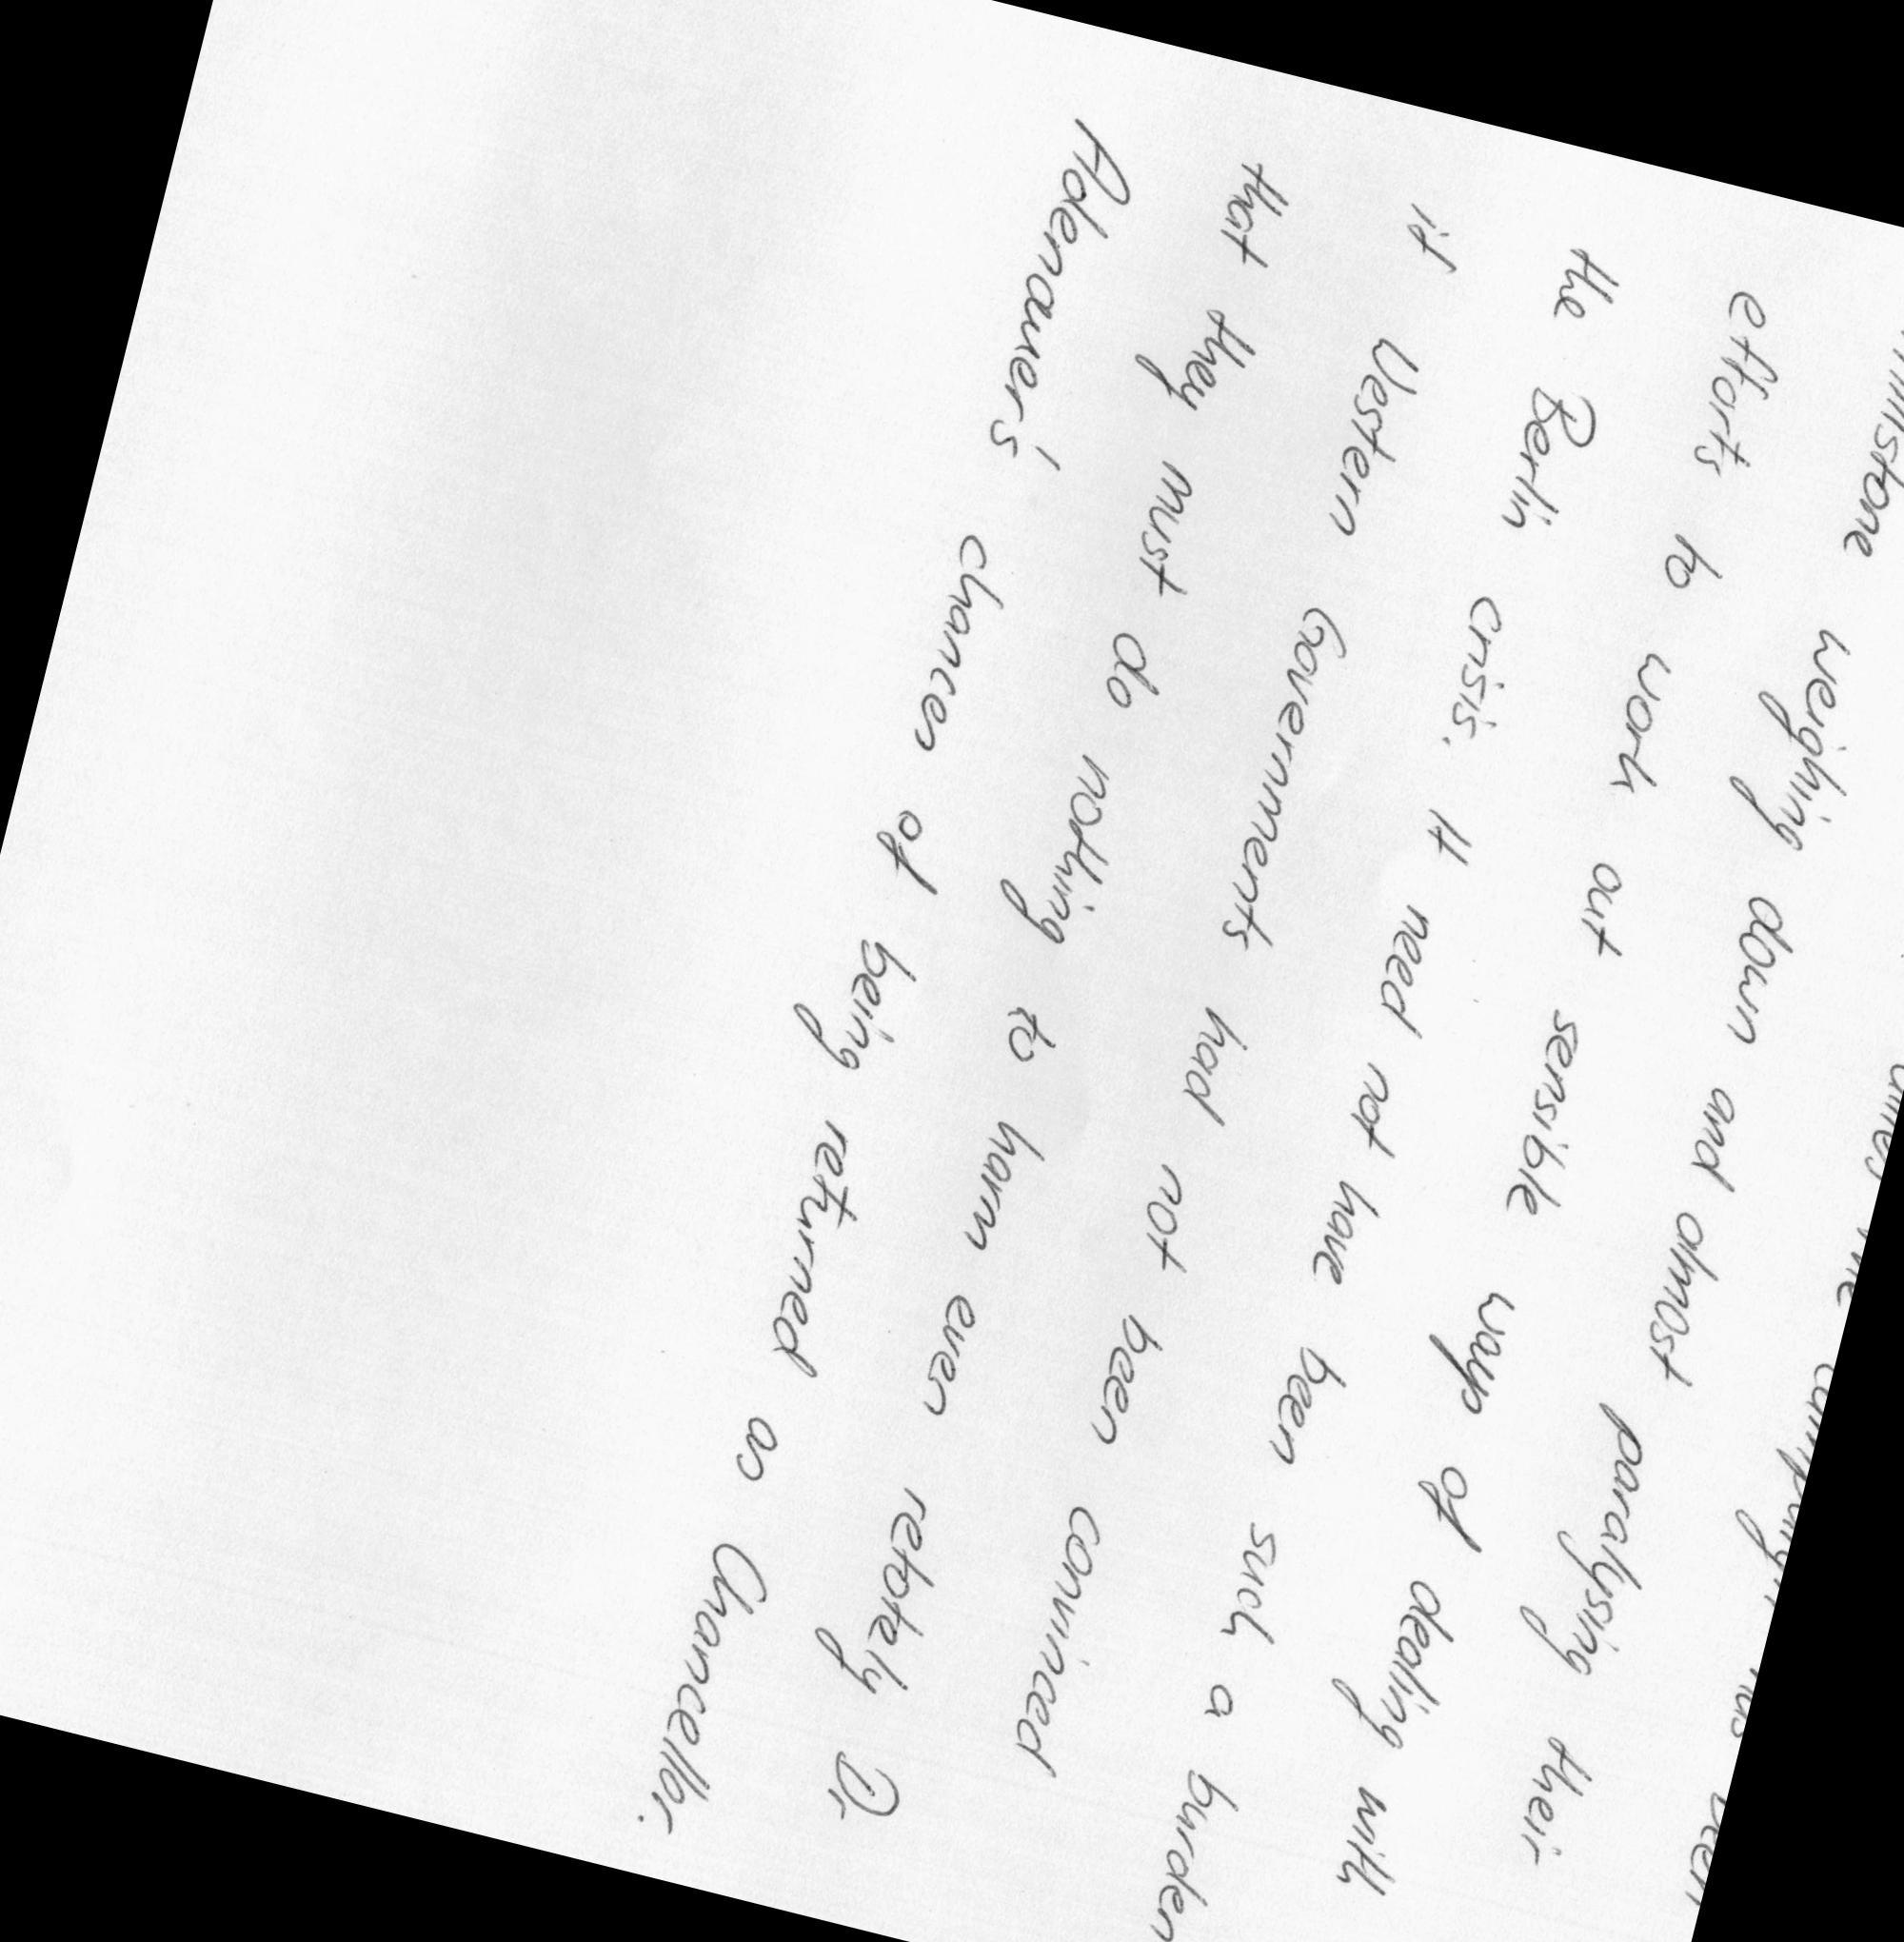 the campaign has been
millstone weighing down and almost paralysing their
efforts to work out sensible ways of dealing with
the Berlin crisis. It need not have been such a burden
if Western Governments had not been convinced
that they must do nothing to harm even retotely Dr
Adenauer's chances of being returned as Chancellor.